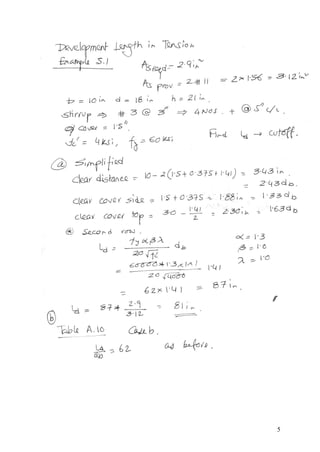 Development Length in Tension
Example 5.1
As reqd = 2.9 in²
As prov = 2 # 11 = 2 x 1.56 = 3.12 in²
b = 10 in d = 18 in h = 21 in.
stirrup ⇒ # 3 @ 3" ⇒ 4 NOS. + @ 5" c/c.
cover = 1.5".
fc' = 4 ksi, fy = 60 ksi
Find ld → cutoff.
(a) Simplified
clear distance = 10 - 2(1.5 + 0.375 + 1.41) = 3.43 in.
= 2.43 db.
clear cover side = 1.5 + 0.375 = 1.88 in = 1.33 db
clear cover top = 3.0 - 1.41/2 = 2.30 in = 1.63 db
Second row.
ld = fy α β λ / 20 √fc' db
α = 1.3
β = 1.0
λ = 1.0
= 60000 * 1.3 x 1 x 1 / 20 √4000 1.41
= 62 x 1.41 = 87 in.
ld = 87 * 2.9/3.12 = 81 in
(b)
Table A.10 Case b.
ld/db = 62 as before.
5